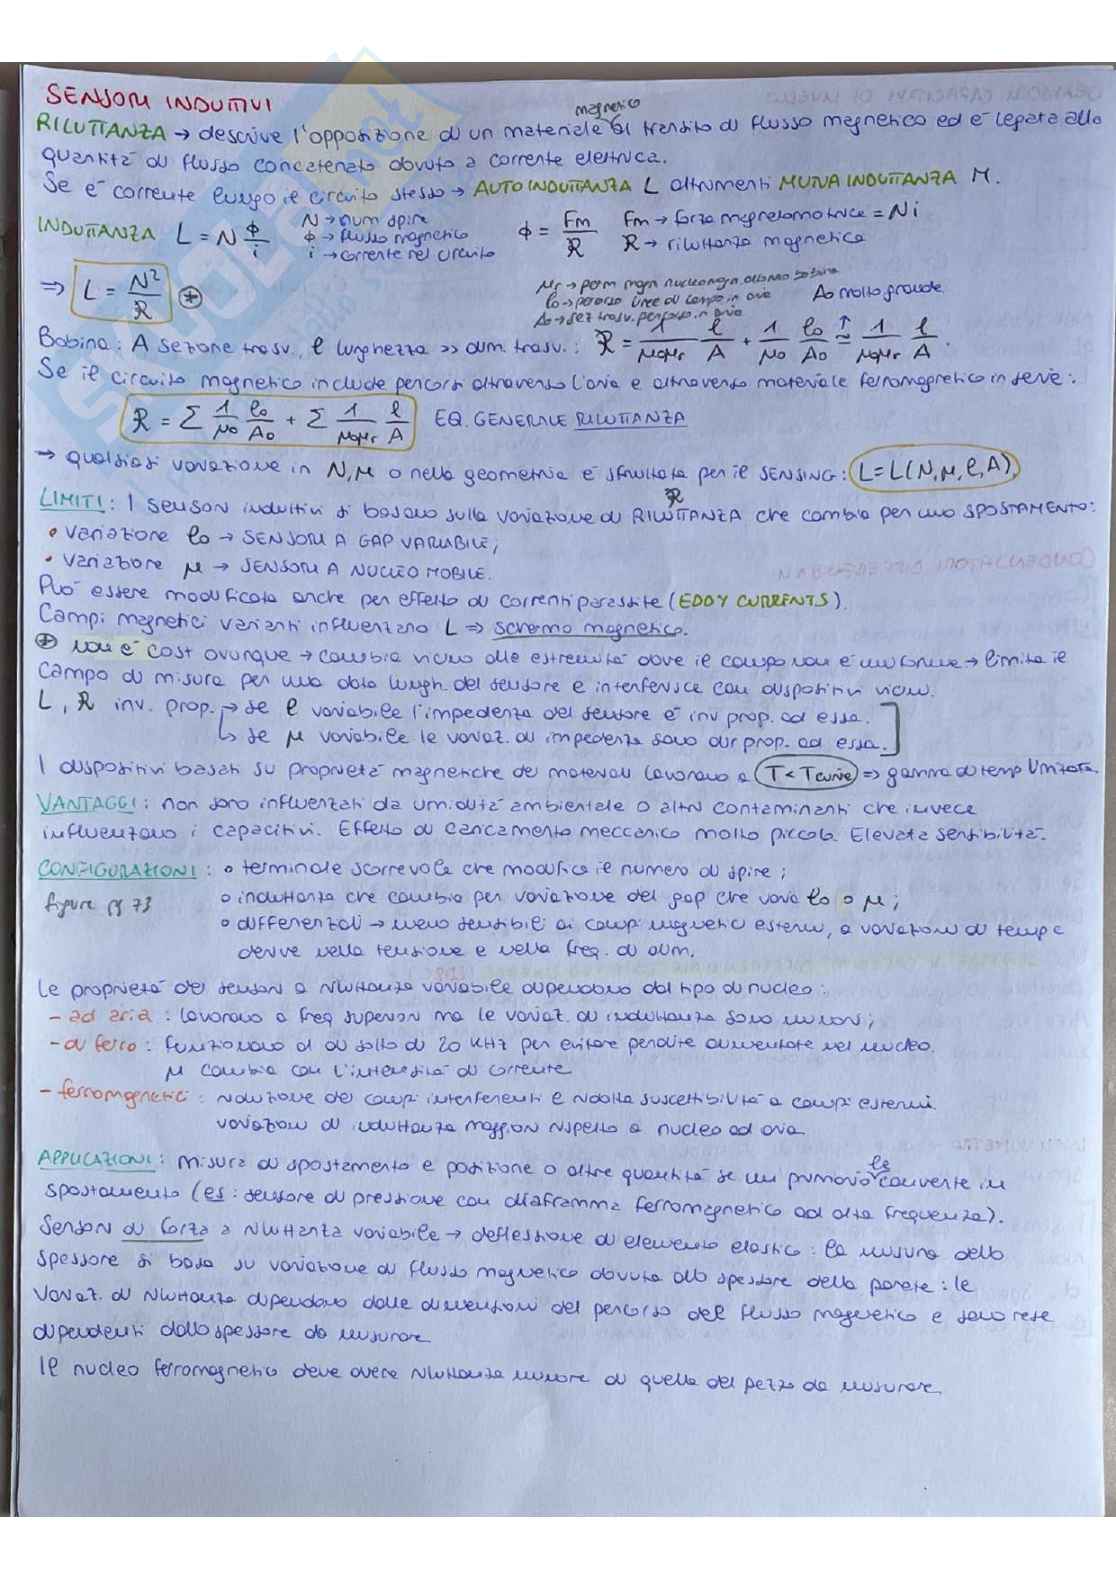 SENSORI INDUTTIVI
RILUTTANZA → descrive l'opposizione di un materiale magnetico al transito di flusso magnetico ed è legata alla
quantità di flusso concatenato dovuto a corrente elettrica.
Se è corrente lungo il circuito stesso → AUTOINDUTTANZA L altrimenti MUTUA INDUTTANZA M.
INDUTTANZA L = N φ/i N → num spire φ → flusso magnetico i → corrente nel circuito φ = Fm/ℜ Fm → forza magnetomotrice = Ni ℜ → riluttanza magnetica
⇒ L = N²/ℜ ⊛ μr → perm magn nucleo magn. all'interno bobina
l0 → percorso linee di campo in aria A0 molto grande
A0 → sez trasv. percorso in aria
Bobina: A sezione trasv., l lunghezza >> dim. trasv.: ℜ = 1/μ0μr l/A + 1/μ0 l0/A0 ≃ 1/μ0μr l/A.
Se il circuito magnetico include percorsi attraverso l'aria e attraverso materiale ferromagnetico in serie:
ℜ = Σ 1/μ0 l0/A0 + Σ 1/μ0μr l/A EQ. GENERALE RILUTTANZA
→ qualsiasi variazione in N, μ o nella geometria è sfruttata per il SENSING: L = L(N, μ, l, A)
LIMITI: I sensori induttivi si basano sulla variazione di RILUTTANZA ℜ che cambia per uno SPOSTAMENTO:
• variazione l0 → SENSORI A GAP VARIABILE;
• variazione μ → SENSORI A NUCLEO MOBILE.
Può essere modificata anche per effetto di correnti parassite (EDDY CURRENTS).
Campi magnetici varianti influenzano L ⇒ schermo magnetico.
⊛ non è cost ovunque → cambia vicino alle estremità dove il campo non è uniforme → limita il
campo di misura per una data lungh. del sensore e interferisce con dispositivi vicini.
L, ℜ inv. prop. → se l variabile l'impedenza del sensore è inv prop. ad essa.
↳ se μ variabile le variaz. di impedenza sono dir prop. ad essa.
I dispositivi basati su proprietà magnetiche dei materiali lavorano a T < Tcurie ⇒ gamma di temp limitata.
VANTAGGI: non sono influenzati da umidità ambientale o altri contaminanti che invece
influenzano i capacitivi. Effetto di caricamento meccanico molto piccolo. Elevata sensibilità.
CONFIGURAZIONI: o terminale scorrevole che modifica il numero di spire;
figure pg 73 o induttanza che cambia per variazione del gap che varia l0 o μ;
o differenziali → meno sensibili ai campi magnetici esterni, a variazioni di temp e
derive nella tensione e nella freq. di alim.
Le proprietà dei sensori a riluttanza variabile dipendono dal tipo di nucleo:
- ad aria: lavorano a freq superiori ma le variaz. di induttanza sono minori;
- di ferro: funzionano al di sotto di 20 kHz per evitare perdite aumentate nel nucleo.
μ cambia con l'intensità di corrente
- ferromagnetici: riduzione dei campi interferenti e ridotta suscettibilità a campi esterni.
variazioni di induttanza maggiori rispetto a nucleo ad aria
APPLICAZIONI: misura di spostamento e posizione o altre quantità se un primario le converte in
spostamento (es: sensore di pressione con diaframma ferromagnetico ad alta frequenza).
Sensori di forza a riluttanza variabile → deflessione di elemento elastico: la misura dello
spessore si basa su variazione di flusso magnetico dovuta allo spessore della parete: le
variaz. di riluttanza dipendono dalle dimensioni del percorso del flusso magnetico e sono rese
dipendenti dallo spessore da misurare
Il nucleo ferromagnetico deve avere riluttanza minore di quella del pezzo da misurare